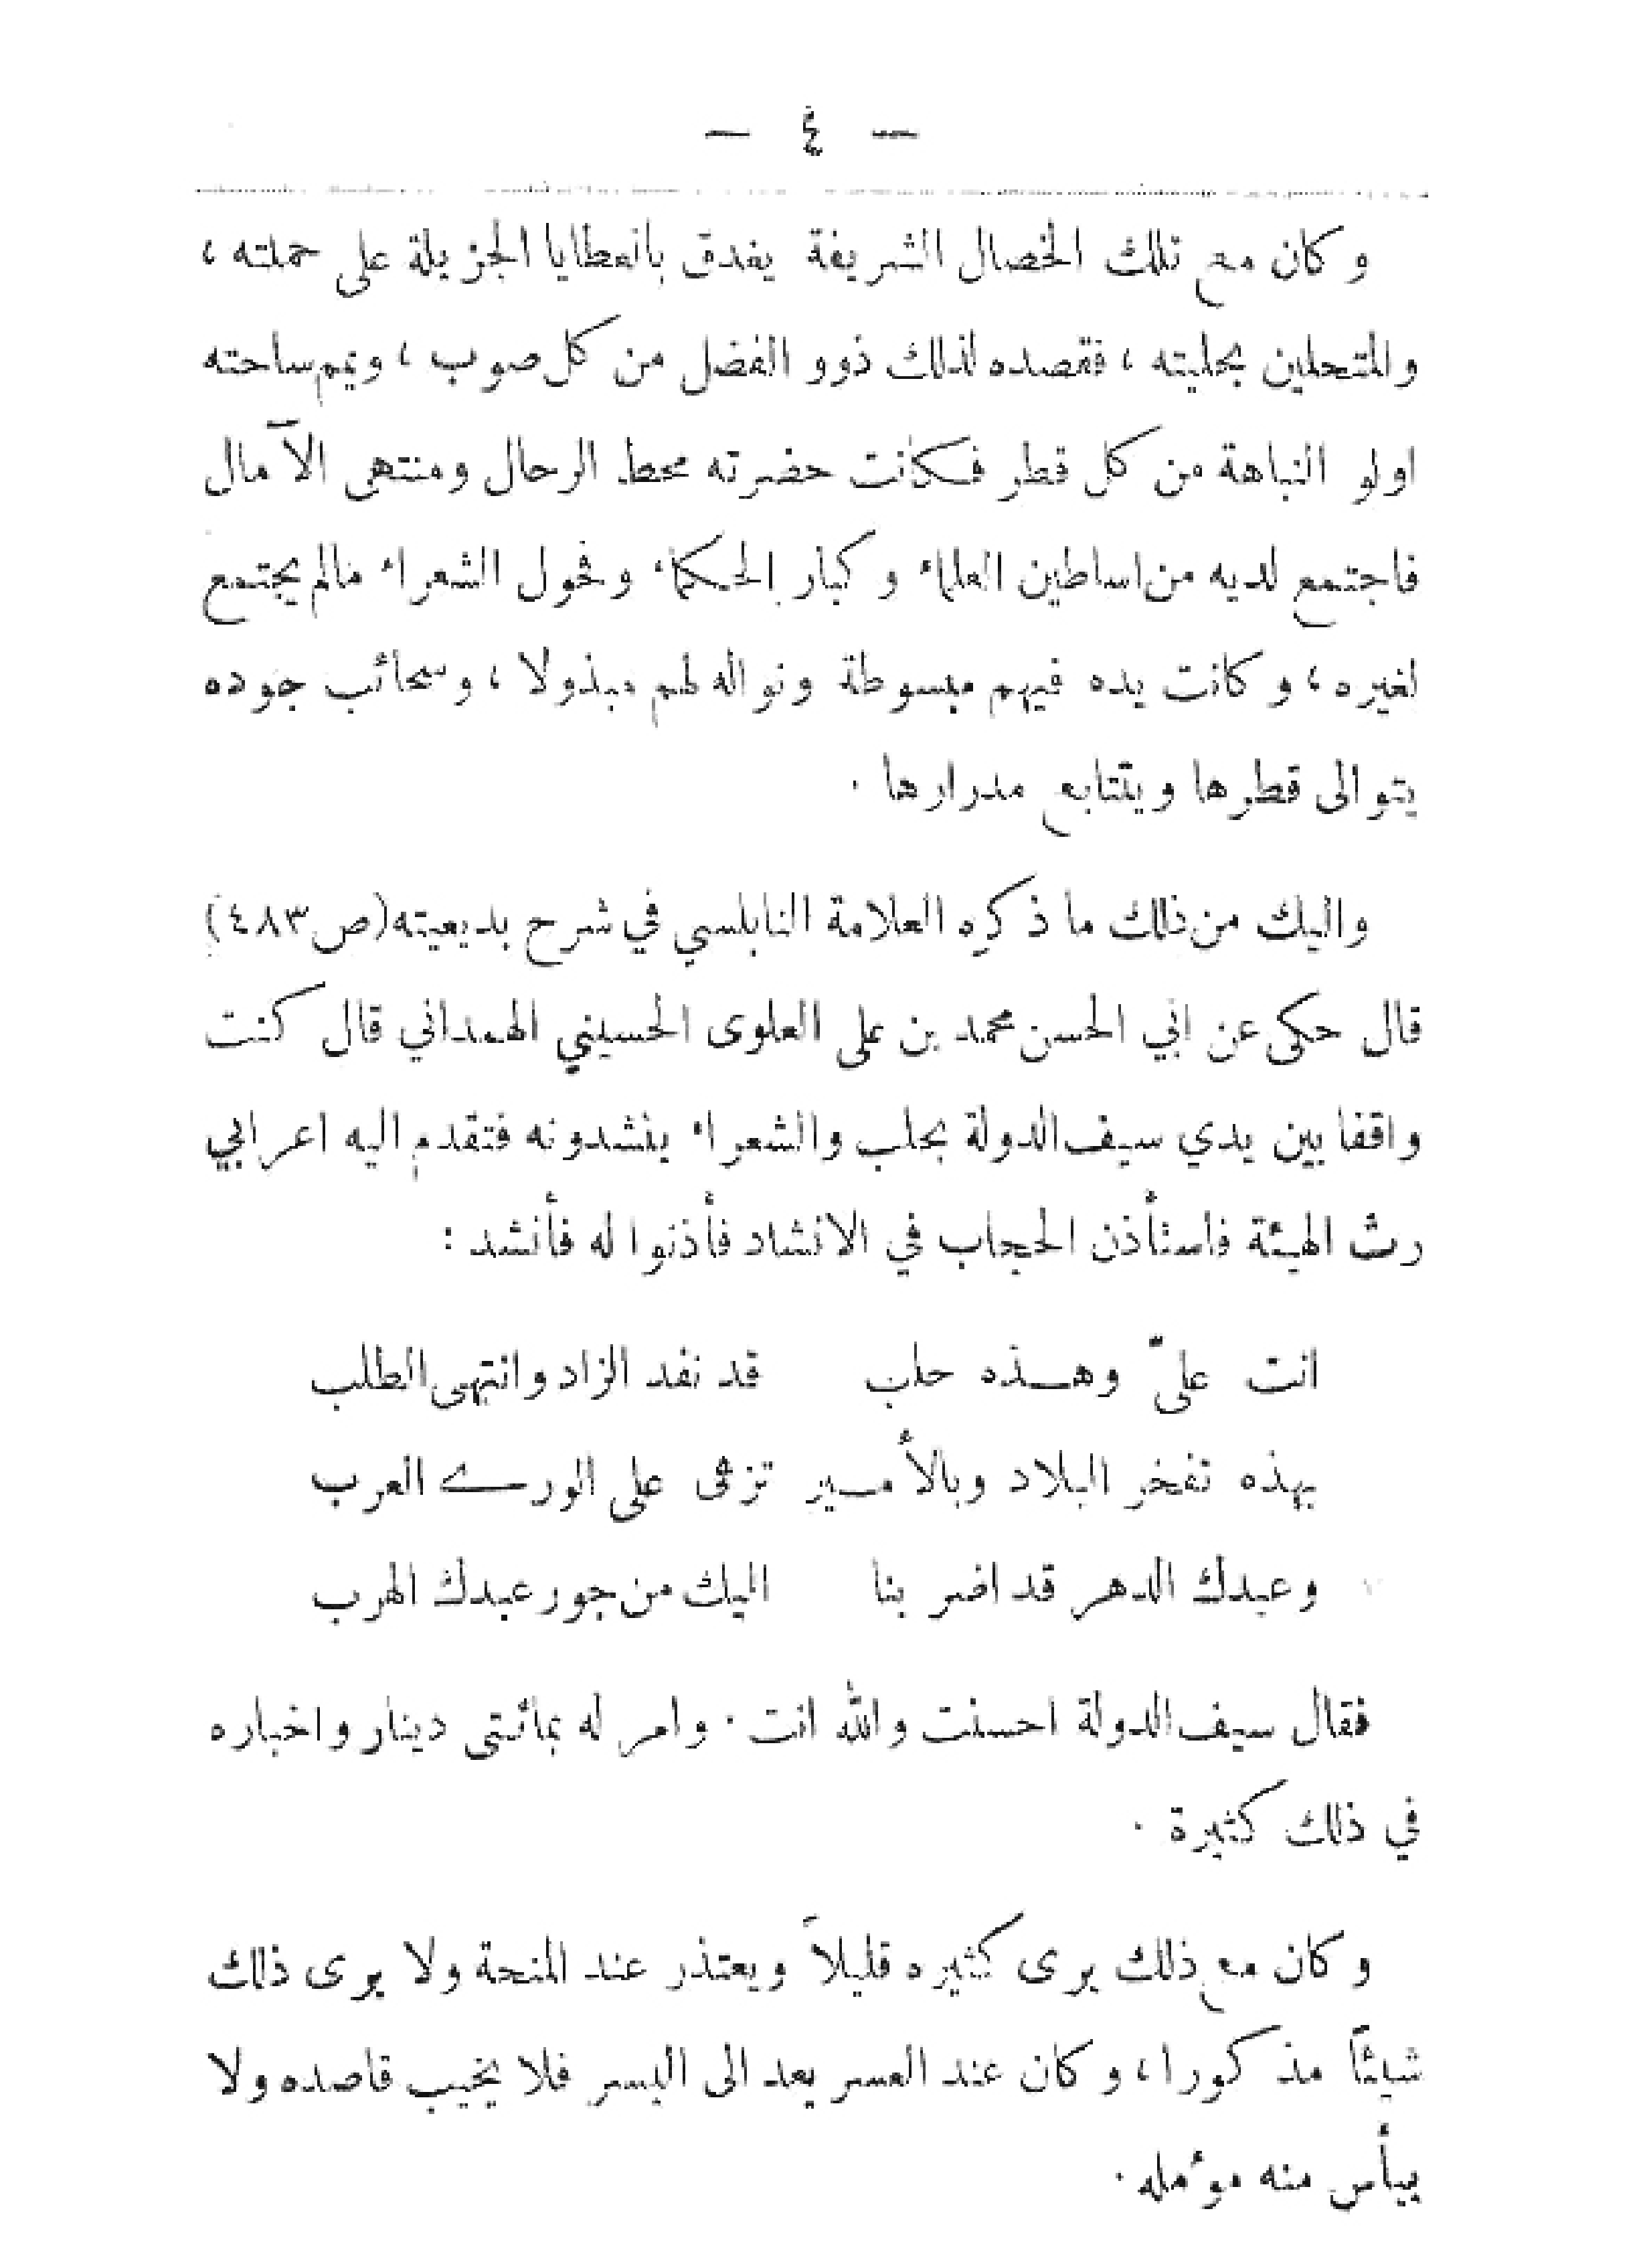 — ٤ —
وكان مع تلك الخصال الشريفة يغدق بالعطايا الجزيلة على حملته ،
والمتحلين بحليته ، فقصده لذلك ذوو الفضل من كل صوب ، ويمم ساحته
اولو النباهة من كل قطر فكانت حضرته محط الرحال ومنتهى الآمال
فاجتمع لديه من اساطين العلماء وكبار الحكماء وفحول الشعراء مالم يجتمع
لغيره ، وكانت يده فيهم مبسوطة ونواله لهم مبذولا ، وسحائب جوده
يتوالى قطرها ويتتابع مدرارها .
واليك من ذلك ما ذكره العلامة النابلسي في شرح بديعيته (ص ٤٨٣)
قال حكى عن ابي الحسن محمد بن على العلوى الحسيني الهمداني قال كنت
واقفا بين يدي سيف الدولة بحلب والشعراء ينشدونه فتقدم اليه اعرابي
رث الهيئة فاستأذن الحجاب في الانشاد فأذنوا له فأنشد :
انت عليّ وهـذه حلب قد نفد الزاد وانتهى الطلب
بهذه تفخر البلاد وبالأمـير تزهى على الورى العرب
وعبدك الدهر قد اضر بنا اليك من جور عبدك الهرب
فقال سيف الدولة احسنت والله انت . وامر له بمائتى دينار واخباره
في ذلك كثيرة .
وكان مع ذلك يرى كثيره قليلاً ويعتذر عند المنحة ولا يرى ذلك
شيئاً مذكورا ، وكان عند العسر يعد الى اليسر فلا يخيب قاصده ولا
ييأس منه مؤمله .